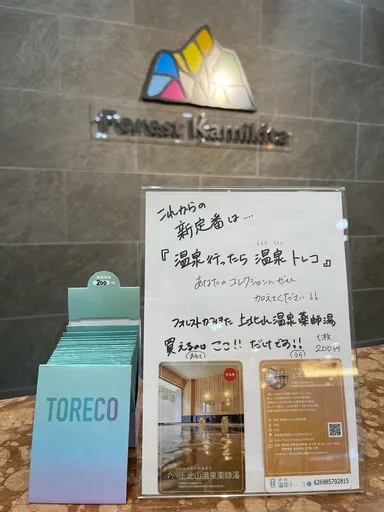 Forest Kamikita
これからの
新定番は....
『温泉行ったら 温泉トレコ』
あなたのコレクションにぜひ
加えてください!!
フォレストかみきた 上北山温泉薬師湯
買えるのは ここ!! だけです!!
1枚
200円
(おもて)
(うら)
200
TORECO
上北山温泉薬師湯
626985792815